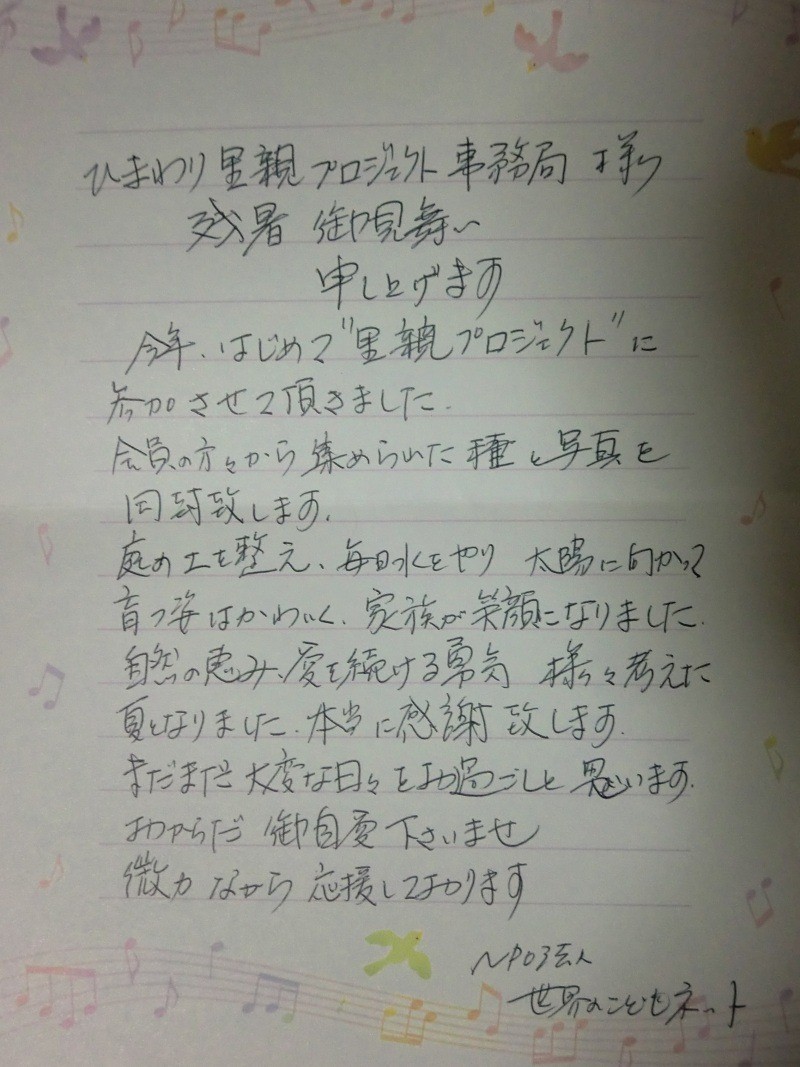 ひまわり里親プロジェクト事務局 様
残暑 御見舞い
申し上げます
今年、はじめて"里親プロジェクト"に
参加させて頂きました.
会員の方々から集められた種と写真を
同封致します.
庭の土を整え、毎日水をやり 太陽に向かって
育つ姿はかわいく、家族が笑顔になりました.
自然の恵み、愛を続ける勇気 様々考えた
夏となりました.本当に感謝致します.
まだまだ大変な日々をお過ごしと思います.
おからだ 御自愛下さいませ
微力ながら応援しております
NPO法人
世界のこどもネット